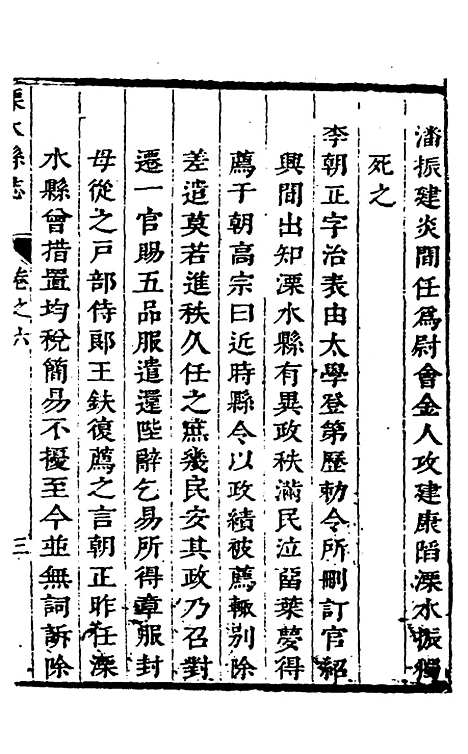 潘振建炎間任爲尉會金人攻建康陷溧水振獨
死之
李朝正字治表由太學登第歷勅令所刪訂官紹
興間出知溧水縣有異政秩滿民泣留葉夢得
薦于朝高宗曰近時縣令以政績被薦輒別除
差遣莫若進秩久任之庶幾民安其政乃召對
遷一官賜五品服遣還陛辭乞易所得章服封
母從之戸部侍郎王鈇復薦之言朝正昨任溧
水縣曾措置均稅簡易不擾至今並無詞訴除
溧水縣志
卷之六
三